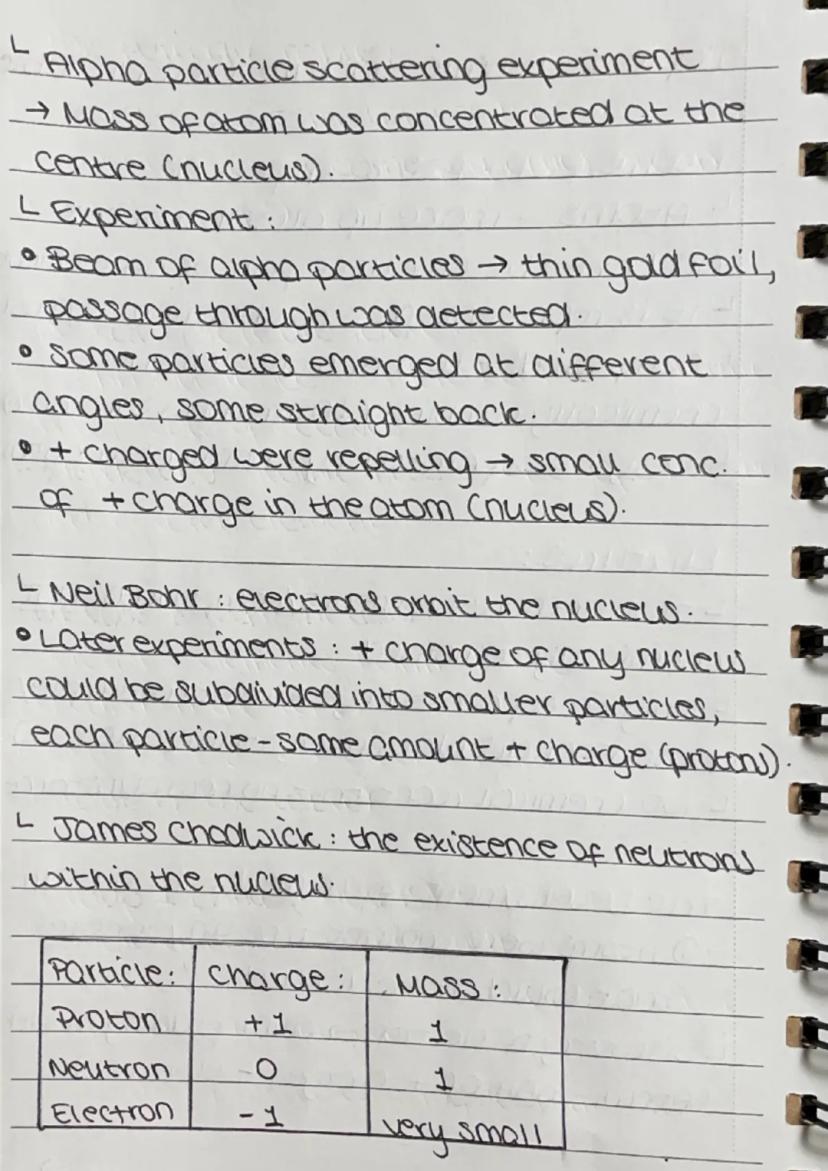 └ Alpha particle scattering experiment
→ Mass of atom was concentrated at the
centre (nucleus).
└ Experiment:
• Beam of alpha particles → thin gold foil,
passage through was detected.
• Some particles emerged at different
angles, some straight back.
• + charged were repelling → small conc.
of + charge in the atom (nucleus).
└ Neil Bohr : electrons orbit the nucleus.
• Later experiments : + charge of any nucleus
could be subdivided into smaller particles,
each particle - same amount + charge (protons).
└ James Chadwick : the existence of neutrons
within the nucleus.
Particle: Charge: Mass:
Proton +1 1
Neutron 0 1
Electron -1 very small